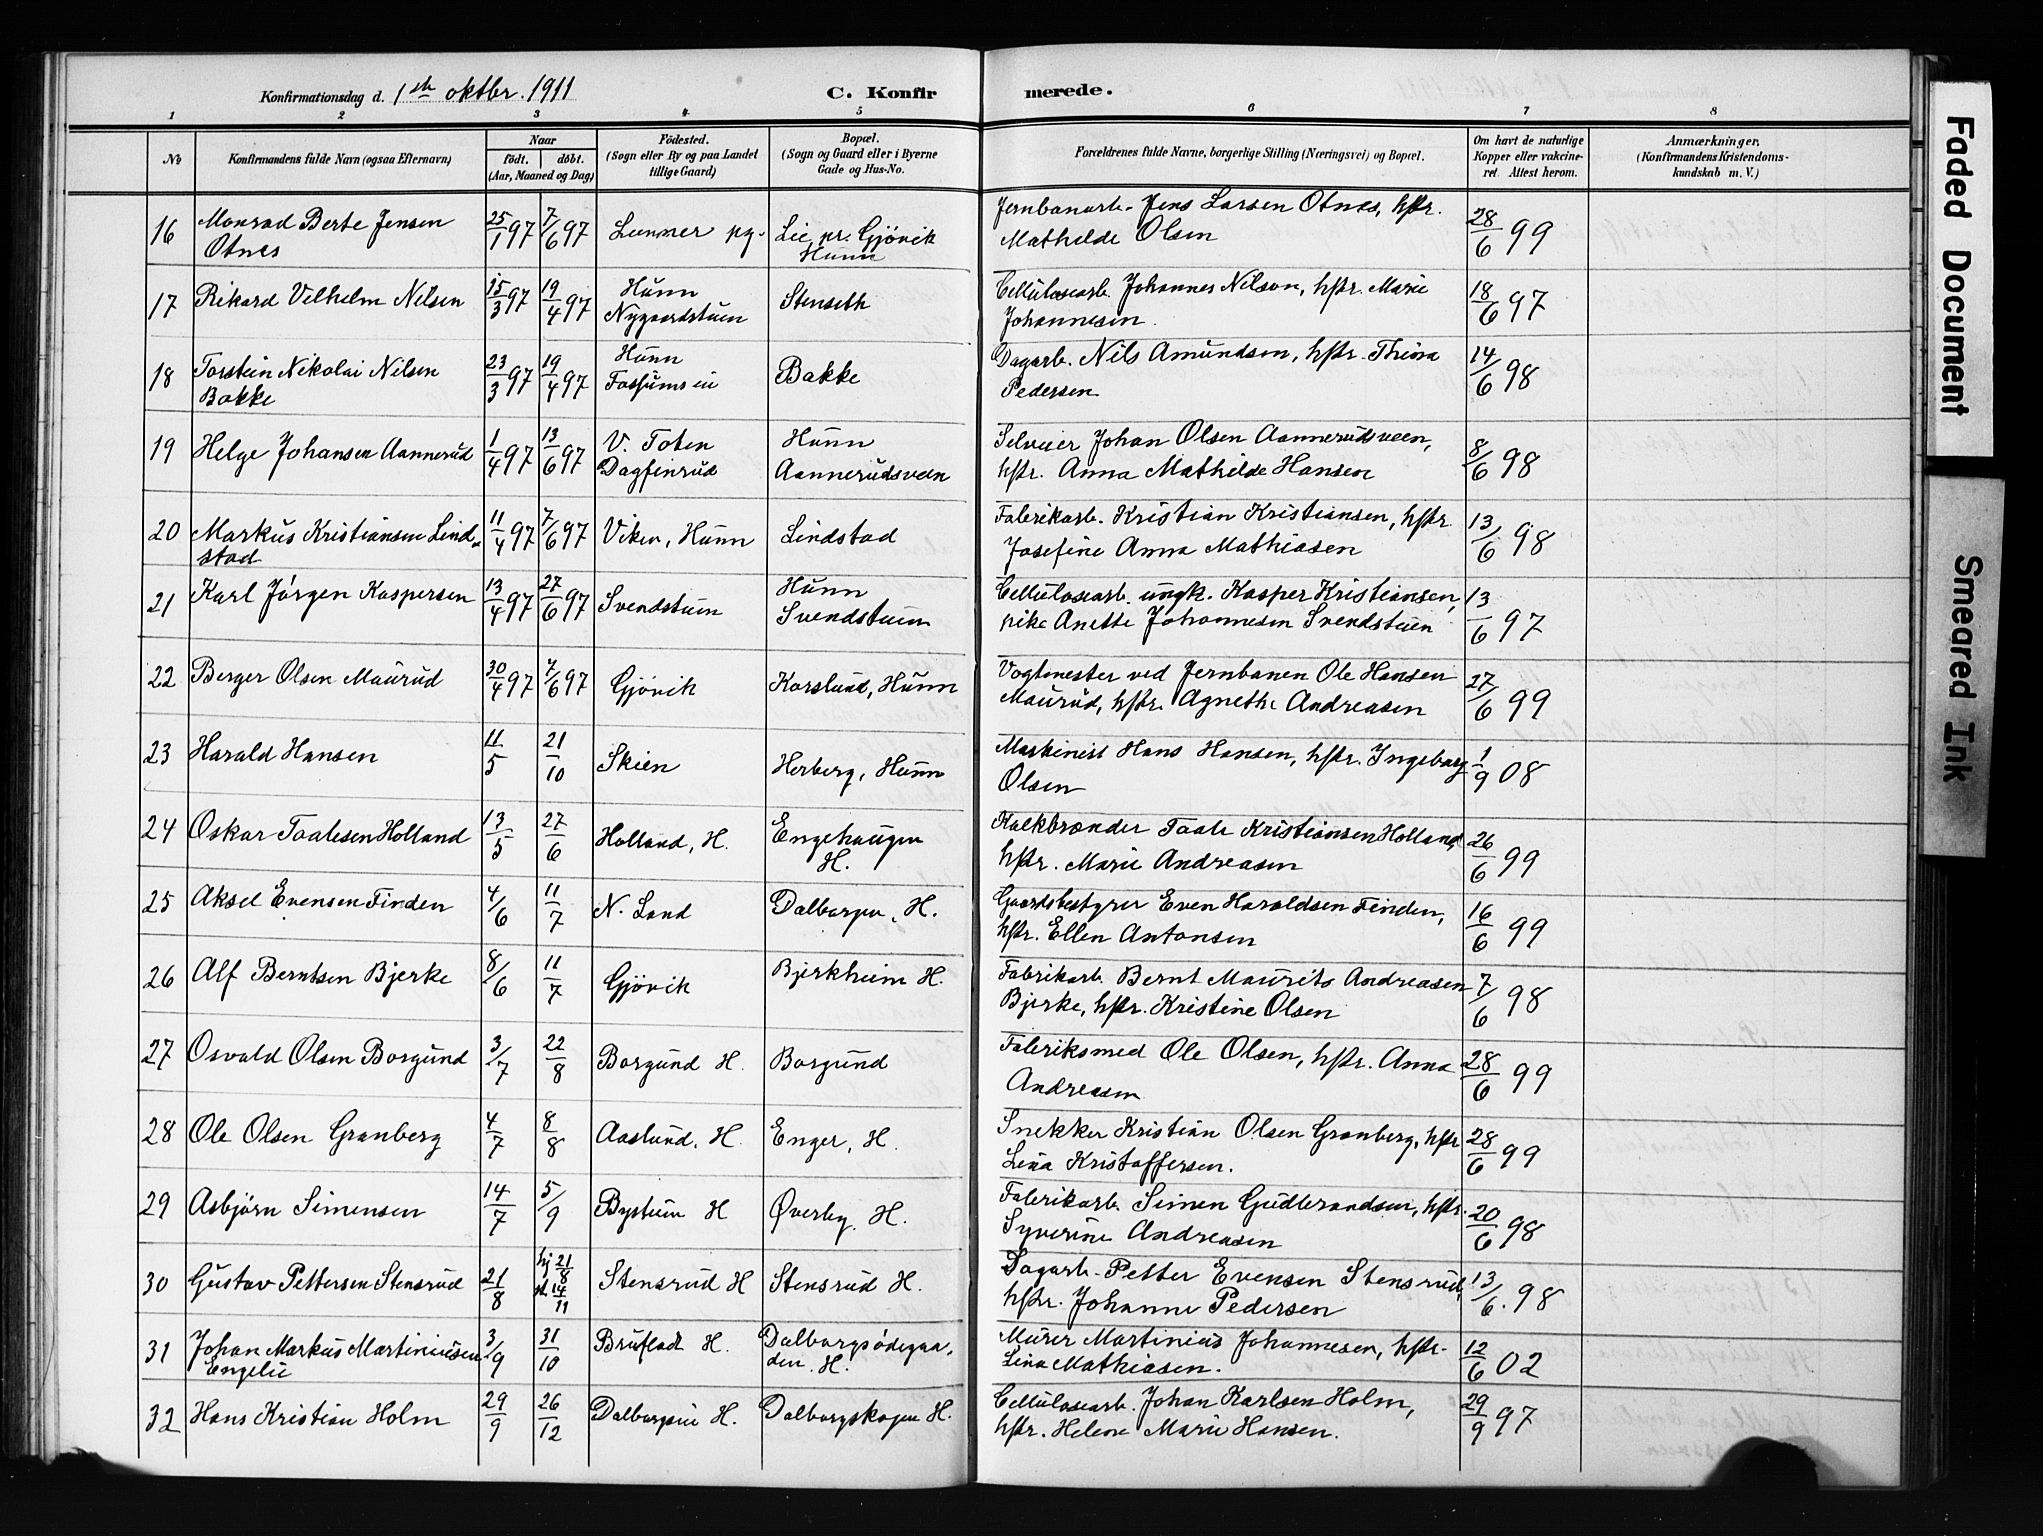 Konfirmationsdag d. 1ste oktbr. 1911 C. Konfir merede.
1 2 3 4 5 6 7 8
No Konfirmandens fulde Navn (ogsaa Efternavn) Naar födt. döbt. (Aar, Maaned og Dag) Födested. (Sogn eller By og paa Landet tillige Gaard) Bopæl. (Sogn og Gaard eller i Byerne Gade og Hus-No. Forældrenes fulde Navne, borgerlige Stilling (Næringsvei) og Bopæl. Om havt de naturlige Kopper eller vakcineret. Attest herom. Anmærkninger. (Konfirmandens Kristendomskundskab m. V.)
16 Monrad Berte Jensen Otnes 25/1 97 7/6 97 Lunner pg. Lie pr. Gjövik Hunn Jernbanarb. Jens Larsen Otnes, hstr. Mathilde Olsen 28/6 99
17 Rikard Vilhelm Nilsen 15/3 97 19/4 97 Hunn Nygaardstuen Stenseth Cellulosearb. Johannes Nilsen, hstr. Marie Johannesen. 18/6 97
18 Torstein Nikolai Nilsen Bakke 23/3 97 19/4 97 Hunn Fossumsei Bakke Dagarb. Nils Amundsen, hstr. Thiora Pedersen 14/6 98
19 Helge Johansen Aannerud 1/4 97 13/6 97 V. Toten Dagfinrud Hunn Aannerudsveen Selveier Johan Olsen Aannerudsveen, hstr. Anna Mathilde Hansen 8/6 98
20 Markus Kristiansen Lindstad 11/4 97 7/6 97 Viken, Hunn Lindstad Fabrikarb. Kristian Kristiansen, hstr. Josefine Anna Mathiasen 13/6 98
21 Karl Jörgen Kaspersen 13/4 97 27/6 97 Svendstuen Hunn Svendstuen Cellulosearb. ungk. Kasper Kristiansen, pike Anette Johannesen Svendstuen 13/6 97
22 Berger Olsen Maurud 30/4 97 7/6 97 Gjövik Karslund, Hunn Vogtmester ved Jernbanen Ole Hansen Maurud, hstr. Agnethe Andreasen 27/6 99
23 Harald Hansen 11/5 21/10 Skien Herberg, Hunn Maskinist Hans Hansen, hstr. Ingeborg Olsen 1/9 08
24 Oskar Taalesen Holland 13/5 27/6 Holland, H. Engehaugen H. Kalkbrænder Taale Kristiansen Holland, hstr. Marie Andreasen 26/6 99
25 Aksel Evensen Finden 4/6 11/7 N. Land Dalborgen, H. Gaardsbestyrer Even Haraldsen Finden, hstr. Ellen Antonsen 16/6 99
26 Alf Berntsen Bjerke 8/6 11/7 Gjövik Bjerkheim H. Fabrikarb. Bernt Maurits Andreasen Bjerke, hstr. Kristine Olsen 7/6 98
27 Osvald Olsen Borgund 3/7 22/8 Borgund H. Borgund Fabriksmed Ole Olsen, hstr. Anna Andreasen 28/6 99
28 Ole Olsen Granberg 4/7 8/8 Aaslund, H. Enger, H. Snekker Kristian Olsen Granberg, hstr. Lina Kristoffersen. 28/6 99
29 Asbjørn Simensen 14/7 5/9 Bystuen H Øverby, H. Fabrikarb. Simen Gudbrandsen, hstr. Syverine Andreasen 20/6 98
30 Gustav Pettersen Stensrud 21/8 hj 21/8 st. 14/11 Stensrud H Stensrud H. Dagarb. Petter Evensen Stensrud, hstr. Johanne Pedersen 13/6. 98
31 Johan Markus Martiniusen Engelie 3/9 31/10 Bruflad H. Dalborgsödegaarden H. Murer Martinius Johannesen, hstr. Lina Mathiasen. 12/6 02
32 Hans Kristian Holm 29/9 26/12 Dalborgsie H. Dalborgskogen H. Cellulosearb. Johan Karlsen Holm, hstr. Helene Marie Hansen. 29/9 97
Faded Document
Smeared Ink